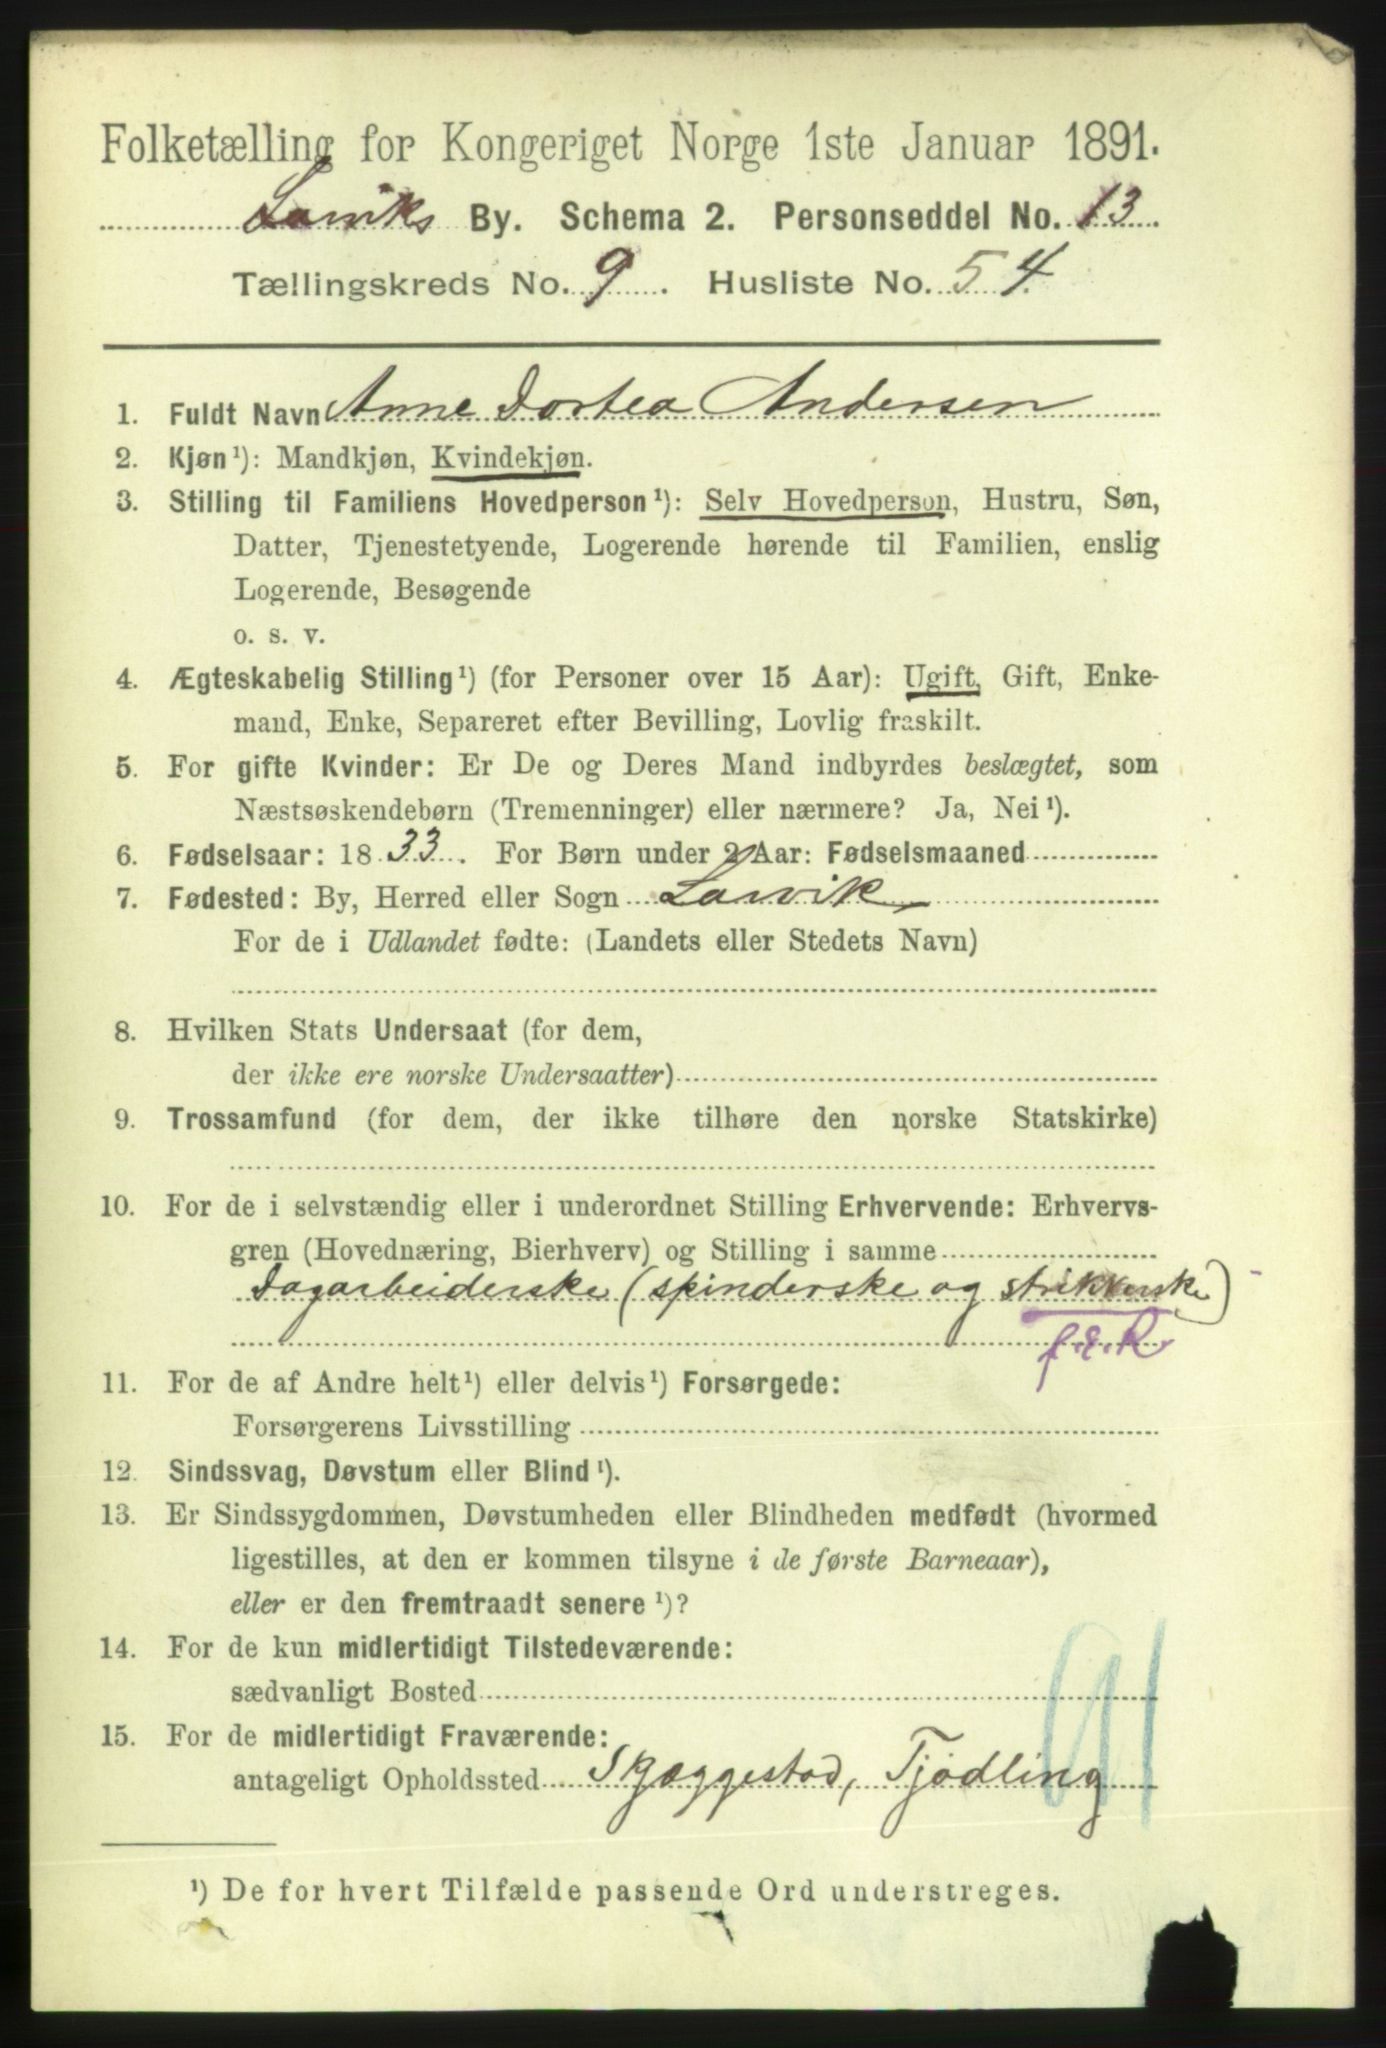 Folketælling for Kongeriget Norge 1ste Januar 1891.
Larviks By. Schema 2. Personseddel No. 13.
Tællingskreds No. 9. Husliste No. 54
1. Fuldt Navn Anne Dortea Andersen
2. Kjøn¹): Mandkjøn, Kvindekjøn.
3. Stilling til Familiens Hovedperson¹): Selv Hovedperson, Hustru, Søn,
Datter, Tjenestetyende, Logerende hørende til Familien, enslig
Logerende, Besøgende
o. s. v.
4. Ægteskabelig Stilling¹) (for Personer over 15 Aar): Ugift, Gift, Enke-
mand, Enke, Separeret efter Bevilling, Lovlig fraskilt.
5. For gifte Kvinder: Er De og Deres Mand indbyrdes beslægtet, som
Næstsøskendebørn (Tremenninger) eller nærmere? Ja, Nei¹).
6. Fødselsaar: 1833. For Børn under 2 Aar: Fødselsmaaned
7. Fødested: By, Herred eller Sogn Larvik
For de i Udlandet fødte: (Landets eller Stedets Navn)
8. Hvilken Stats Undersaat (for dem,
der ikke ere norske Undersaatter)
9. Trossamfund (for dem, der ikke tilhøre den norske Statskirke)
10. For de i selvstændig eller i underordnet Stilling Erhvervende: Erhvervs-
gren (Hovednæring, Bierhverv) og Stilling i samme
Dagarbeiderske (spinderske og strikkerske)
f.E.R.
11. For de af Andre helt¹) eller delvis¹) Forsørgede:
Forsørgerens Livsstilling
12. Sindssvag, Døvstum eller Blind¹).
13. Er Sindssygdommen, Døvstumheden eller Blindheden medfødt (hvormed
ligestilles, at den er kommen tilsyne i de første Barneaar),
eller er den fremtraadt senere¹)?
14. For de kun midlertidigt Tilstedeværende:
sædvanligt Bosted
15. For de midlertidigt Fraværende:
antageligt Opholdssted Skjæggestad, Tjödling
91
¹) De for hvert Tilfælde passende Ord understreges.